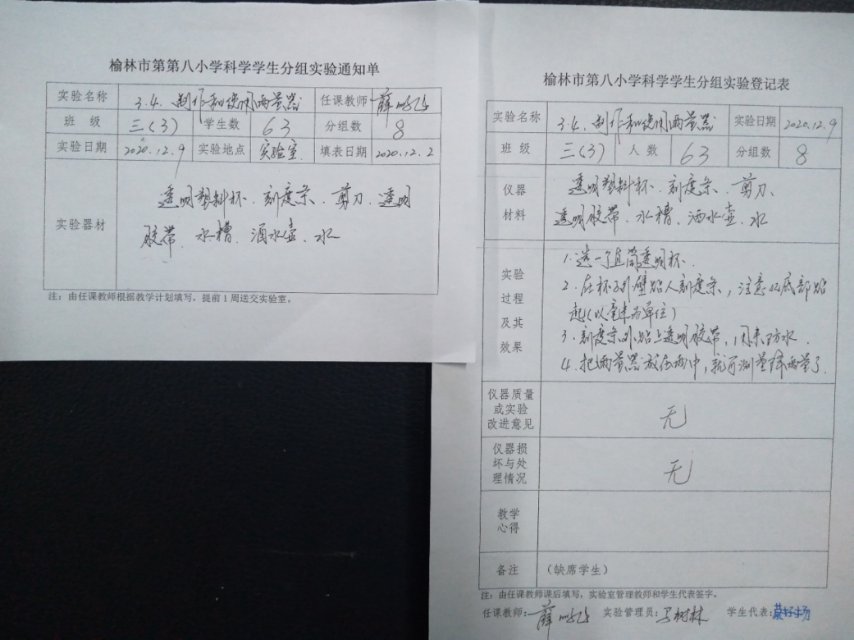 榆林市第第八小学科学学生分组实验通知单
实验名称 3.4.制作和使用雨量器 任课教师 薛
班 级 三(3) 学生数 63 分组数 8
实验日期 2020.12.9 实验地点 实验室 填表日期 2020.12.2
实验器材
透明塑料杯、刻度条、剪刀、透明
胶带、水槽、洒水壶、水
注：由任课教师根据教学计划填写，提前1周送交实验室。
榆林市第第八小学科学学生分组实验登记表
实验名称 3.4.制作和使用雨量器 实验日期 2020.12.9
班 级 三(3) 人 数 63 分组数 8
仪器
材料
透明塑料杯、刻度条、剪刀、
透明胶带、水槽、洒水壶、水
实验
过程
及其
效果
1.选一个直筒透明杯.
2.在杯子外壁贴入刻度条，注意从底部贴
起(以毫米为单位)
3.刻度条外贴上透明胶带，用来防水.
4.把雨量器放在雨中，就可测量降雨量了.
仪器质量
或实验
改进意见
无
仪器损
坏与处
理情况
无
教学
心得
备注 （缺席学生）
注：由任课教师课后填写，实验室管理教师和学生代表签字。
任课教师：薛 实验管理员：马树林 学生代表：